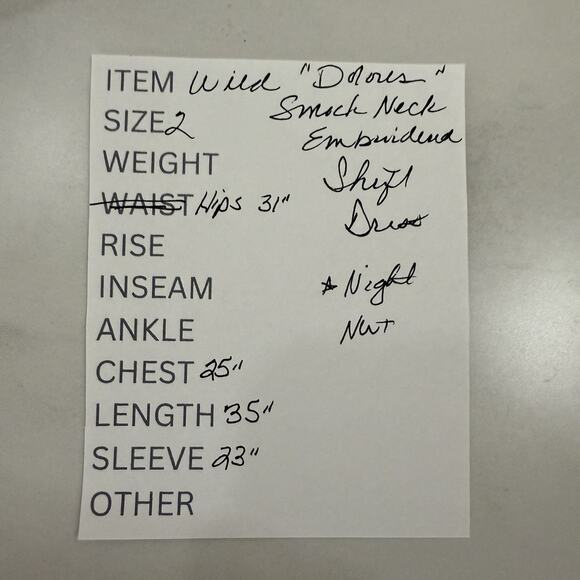 ITEM Wild "Dolores"
SIZE 2 Smock Neck
Embroidered
WEIGHT Shift
WAIST Hips 31"
Dress
RISE
INSEAM * Night
ANKLE NWT
CHEST 25"
LENGTH 35"
SLEEVE 23"
OTHER